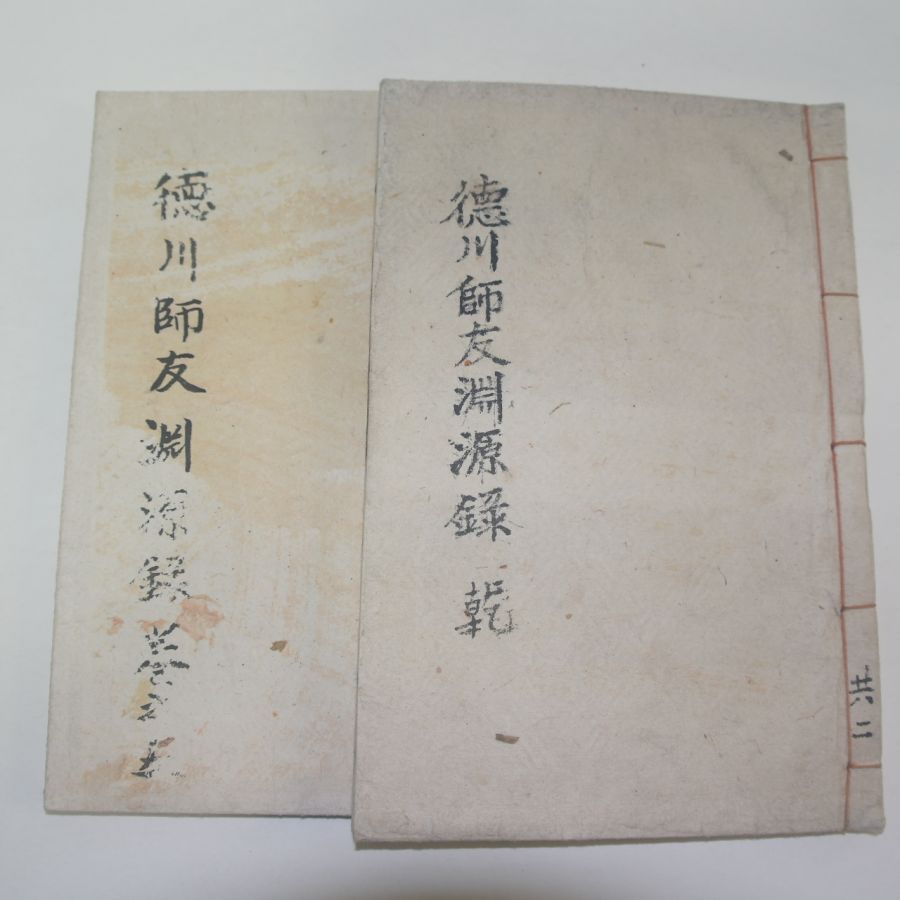 德川師友淵源錄 乾
共二
德川師友淵源錄卷之